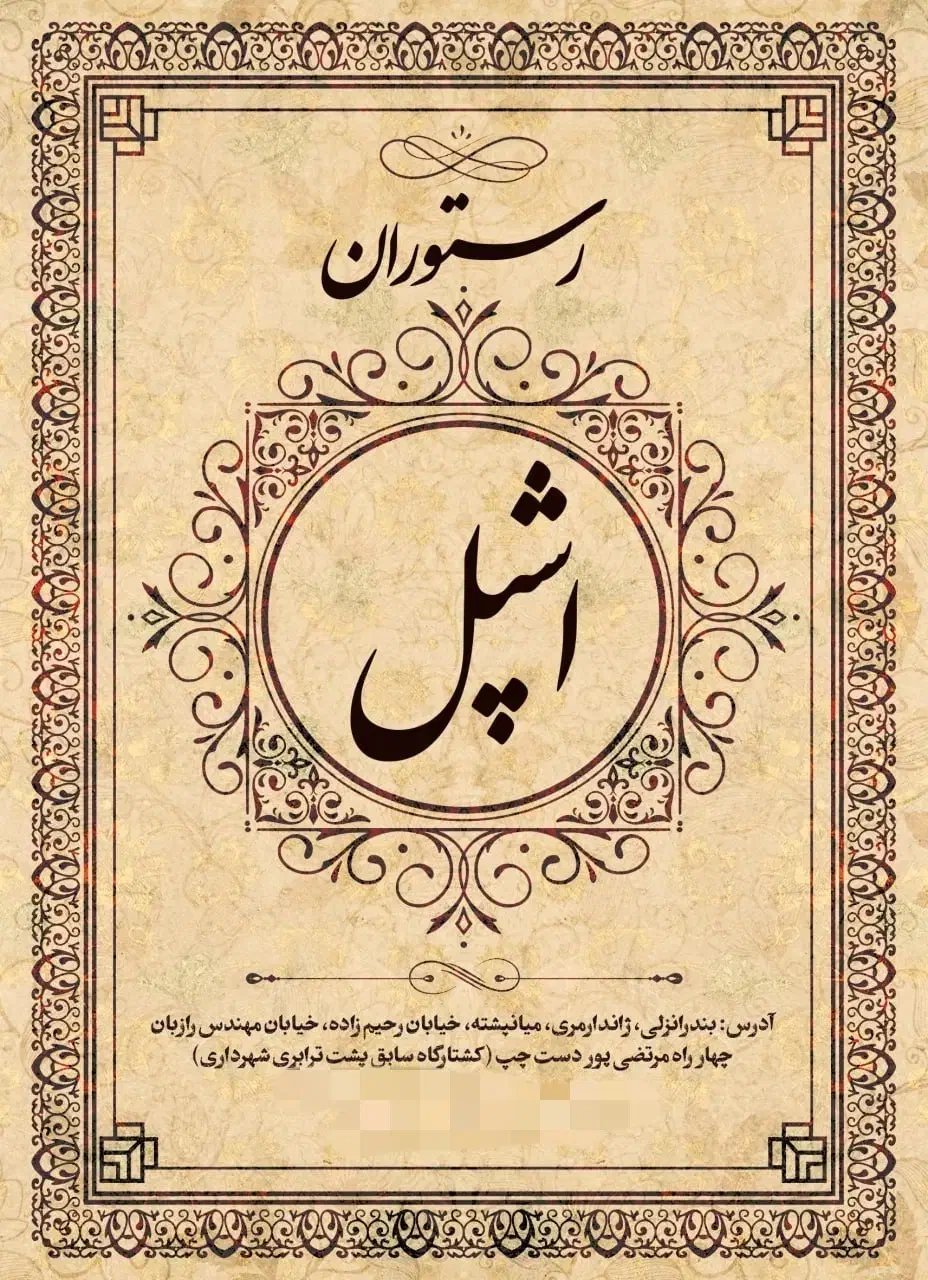 رستوران
اشپل
آدرس: بندرانزلی، ژاندارمری، میانپشته، خیابان رحیم زاده، خیابان مهندس رازبان
چهار راه مرتضی پور دست چپ (کشتارگاه سابق پشت ترابری شهرداری)